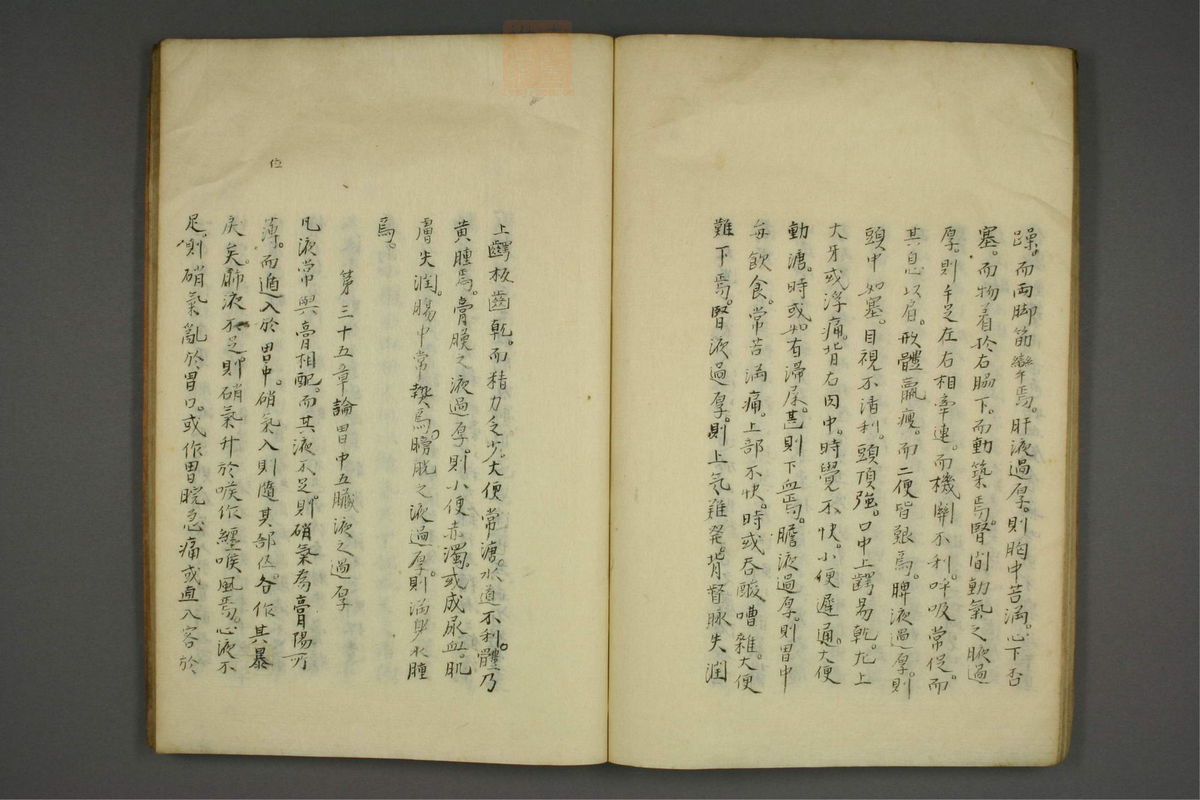 躁。而両脚筋攣焉。肝液過厚。則胸中苦満。心下否
塞。而物着於右脇下。而動築焉。腎間動氣之腋過
厚。則手足左右相牽連。而機関不利。呼吸常促。而
其息以肩。形體羸痩。而二便皆艱焉。脾液過厚。則
頭中如塞。目視不清利。頭頂強。口中上齶易乾。尤上
大牙或浮痛。背右肉中。時覺不快。小便遲通。大便
動溏。時或如有滞屎。甚則下血焉。膽液過厚。則胃中
毎飲食。常苦満痛。上部不快。時或呑酸嘈雜。大便
難下焉。腎液過厚。則上気難発。背督脉失潤
上齶板齒乾。而精力乏少。大便常溏。水道不利。體乃
黄腫焉。膏膜之液過厚。則小便赤濁。或成尿血。肌
膚失潤。腸中常熱焉。膀胱之液過厚則満身水腫
焉。
第三十五章論胃中五臓液之過厚
凡液常與膏相配。而其液不足。則硝氣為膏陽所
薄。而遁入於胃中。硝氣入則隨其部伍。各作其暴
戻矣。肺液不足則硝氣升於喉作纏喉風焉。心液不
足。則硝氣亂於胃口。或作胃脘急痛或直入客於
位